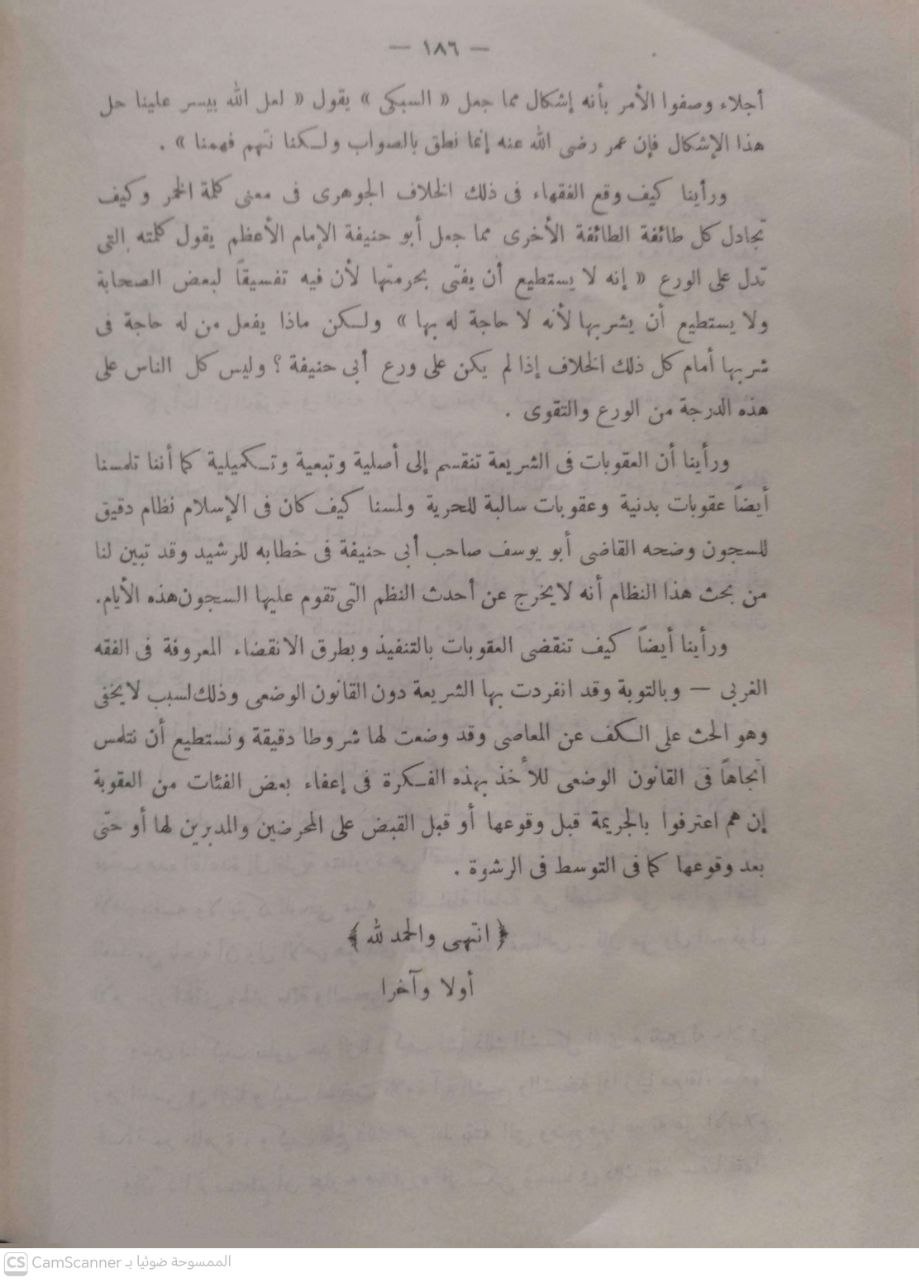 — ١٨٦ —
أجلاء وصفوا الأمر بأنه إشكال مما جعل « السبكى » يقول « لعل الله ييسر علينا حل
هذا الإشكال فإن عمر رضى الله عنه إنما نطق بالصواب ولكنا نتهم فهمنا » .
ورأينا كيف وقع الفقهاء فى ذلك الخلاف الجوهرى فى معنى كلمة الخمر وكيف
تجادل كل طائفة الطائفة الأخرى مما جعل أبو حنيفة الإمام الأعظم يقول كلمته التى
تدل على الورع « إنه لا يستطيع أن يفتى بحرمتها لأن فيه تفسيقاً لبعض الصحابة
ولا يستطيع أن يشربها لأنه لا حاجة له بها » ولكن ماذا يفعل من له حاجة فى
شربها أمام كل ذلك الخلاف إذا لم يكن على ورع أبى حنيفة ؟ وليس كل الناس على
هذه الدرجة من الورع والتقوى .
ورأينا أن العقوبات فى الشريعة تنقسم إلى أصلية وتبعية وتكميلية كما أننا تلمسنا
أيضاً عقوبات بدنية وعقوبات سالبة للحرية ولمسنا كيف كان فى الإسلام نظام دقيق
للسجون وضحه القاضى أبو يوسف صاحب أبى حنيفة فى خطابه للرشيد وقد تبين لنا
من بحث هذا النظام أنه لا يخرج عن أحدث النظم التى تقوم عليها السجون هذه الأيام.
ورأينا أيضاً كيف تنقضى العقوبات بالتنفيذ وبطرق الانقضاء المعروفة فى الفقه
الغربى — وبالتوبة وقد انفردت بها الشريعة دون القانون الوضعى وذلك لسبب لا يخفى
وهو الحث على الكف عن المعاصى وقد وضعت لها شروطا دقيقة ونستطيع أن نتلمس
اتجاهاً فى القانون الوضعى للأخذ بهذه الفكرة فى إعفاء بعض الفئات من العقوبة
إن هم اعترفوا بالجريمة قبل وقوعها أو قبل القبض على المحرضين والمدبرين لها أو حتى
بعد وقوعها كما فى التوسط فى الرشوة .
﴿ انتهى والحمد لله ﴾
أولا وآخرا
CS CamScanner الممسوحة ضوئيا بـ